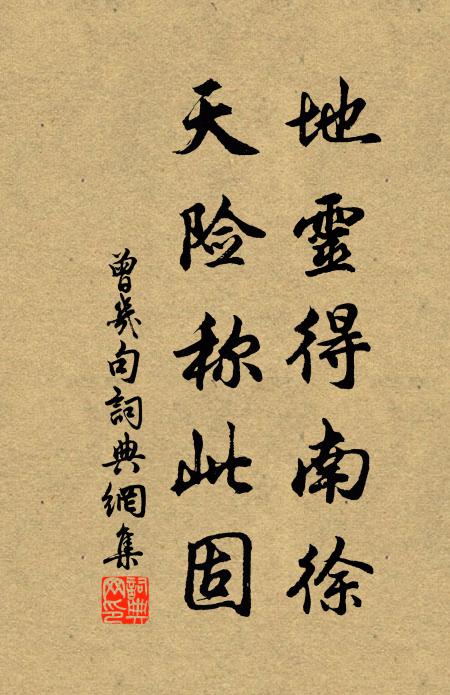 地靈得南徐
天险称此固
曾幾句詞典網集
詞典网印